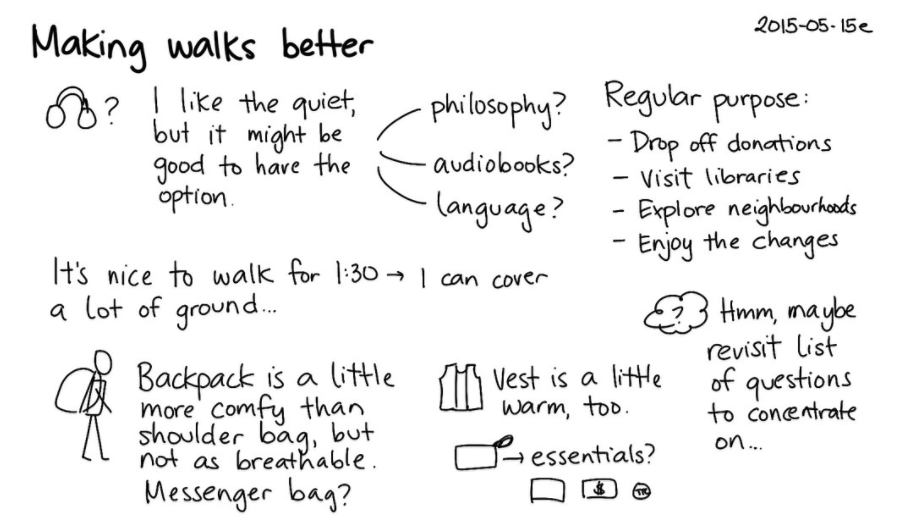 2015-05-15e
Making walks better
?
I like the quiet,
but it might be
good to have the
option.
philosophy?
audiobooks?
language?
Regular purpose:
- Drop off donations
- Visit libraries
- Explore neighbourhoods
- Enjoy the changes
It's nice to walk for 1:30 → I can cover
a lot of ground...
?
Hmm, maybe
revisit list
of questions
to concentrate
on...
Backpack is a little
more comfy than
shoulder bag, but
not as breathable.
Messenger bag?
Vest is a little
warm, too.
→ essentials?
$